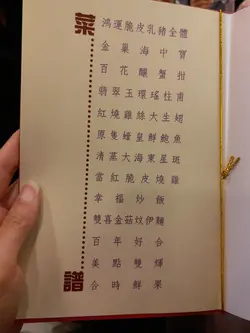 菜譜
鴻運脆皮乳豬全體
金巢海中寶
百花釀蟹拑
翡翠玉環瑤柱甫
紅燒雞絲大生翅
原隻蠔皇鮮鮑魚
清蒸大海東星斑
當紅脆皮燒雞
幸福炒飯
雙喜金菇炆伊麵
百年好合
美點雙輝
合時鮮果